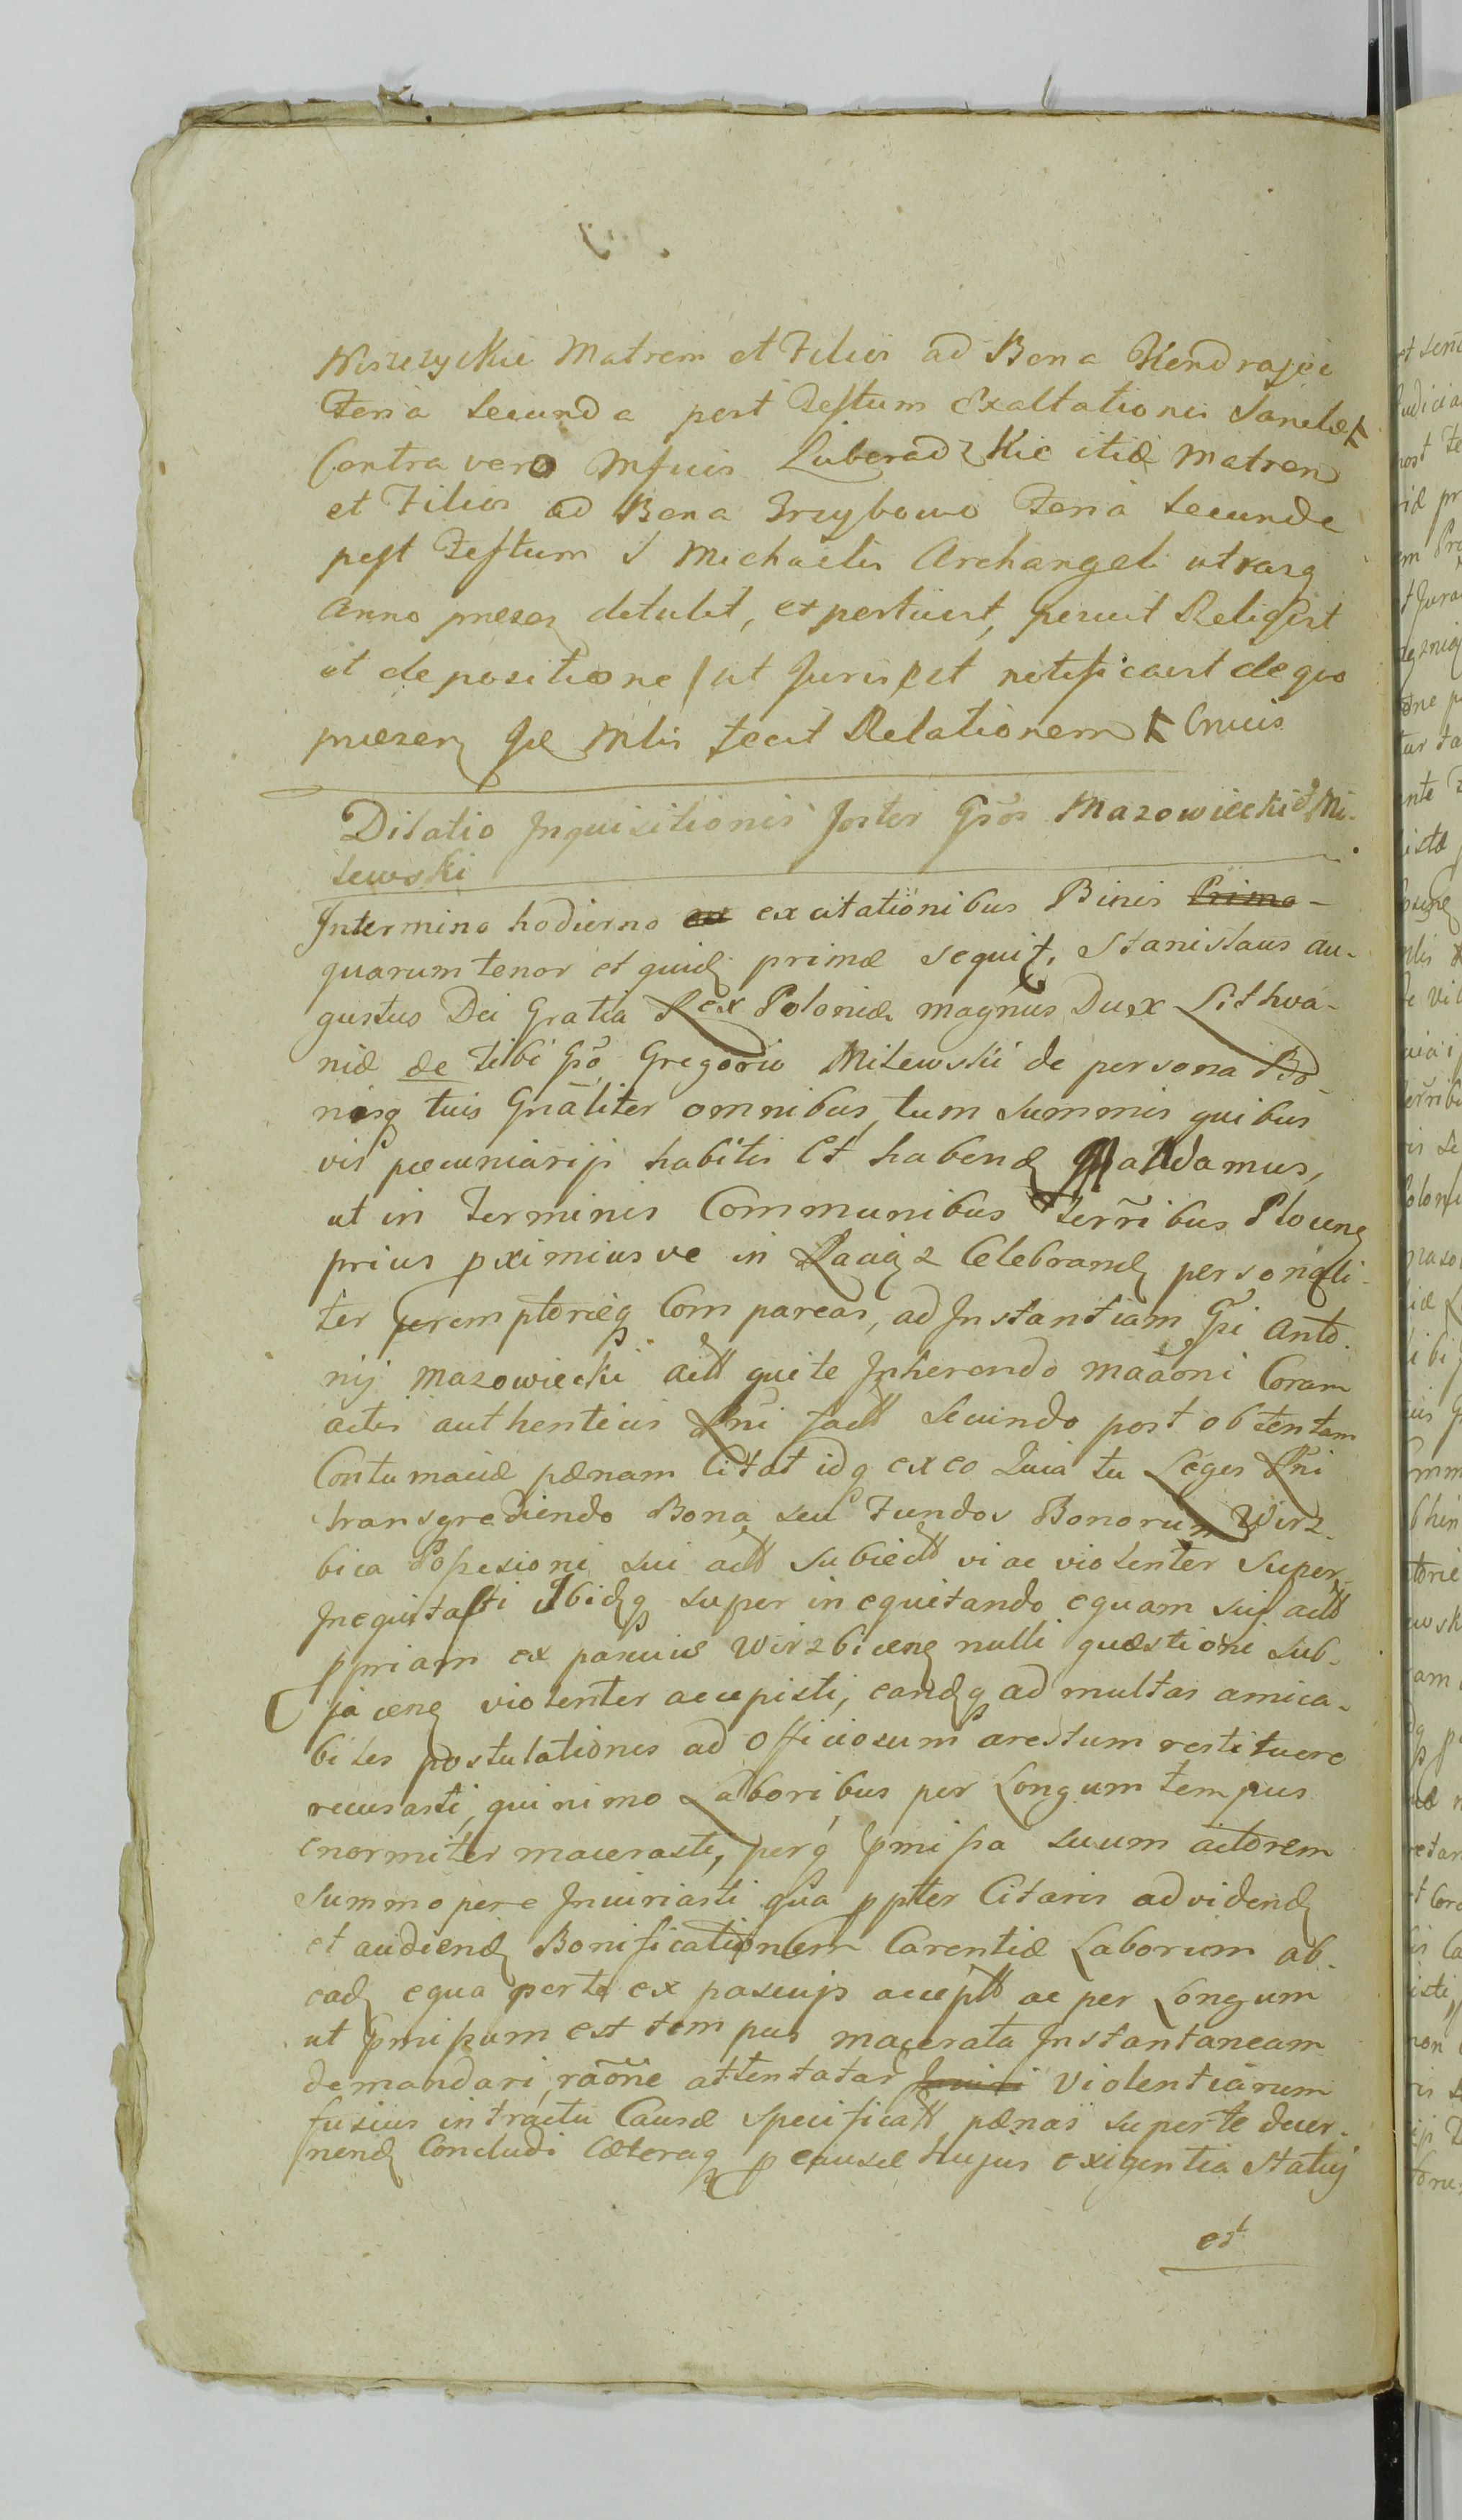 Wiszczyckie Matrem et Filios ad Bona Kendrajce
Feria Secunda post Festum Exaltationis Sanctæ ⊦
Contra vero Mfcuis Luberadzkie itid Matrem
et Filios ad Bona Grzybowo Feria Secunda
post Festum S Michaelis Archangeli utrasq
Anno præsen detulit, et portuit, ponuit Reliqsit
et depositione (ut Juris est notificavit de quo
præsen Jle Mlis fecit Relationem ⊦ Crucis
Dilatio Inquisitionis Inter Gsos Mazowiecki et Mi-
lewski
Intermino hodierno ex citationibus Binis Prima-
quarum tenor et quid primæ sequit, Stanislaus au-
gustus Dei Gratia Rex Poloniæ magnus Dux Lithva-
niæ de tibi Gso Gregorio Milewski de persona Bo-
nisq tuis Gnaliter omnibus, tum summis quibus
vis pæcuniarijs habitis Et habend Mandamus,
ut in Terminis Communibus Terribus Plocen
prius pximiusve in Raciąz Celebrand personali-
ter peremptorieq Compareas, ad Instantiam Gsi Anto-
nij Mazowiecki act qui te Inherendo maaoni Coram
actis authenticis Rni fact Secundo post obtentam
Contumaciæ pænam Citat idq ex eo Quia tu Leges Rni
transgrediendo Bona seu Fundos Bonorum Wirz-
bica Possesioni sui act subiect vi ac violenter Super-
Inequitasti Ibidq super inequitando equam suj act
ppriam ex pascuis Wirzbicen nulli quæstioni sub-
jacen violenter accepisti, eandq ad multas amica-
biles postulationes ad officiosum arestum restituere
recusasti, quinimo Laboribus per Longum tempus
enormiter macerasti, perq pmissa suum actorem
summopere Iniuriasti qua ppter Citaris ad vidend
et audiend Bonificationem Carentiæ Laborum ab-
ead equa per te ex pascujs accept ac per Longum
ut pmissum est tempus macerata Instantaneam
demandari, raone attentatar Violentiarum
fusius intractu Causæ specificat pænas super te decer-
nend Concludi Cæteraq p causæ hujus exigentia Statuj
et